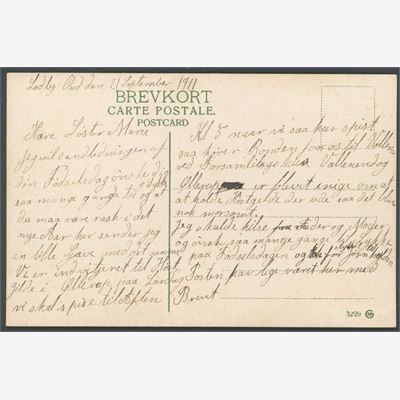 Ladby Ovd den 21 September 1911
BREVKORT
CARTE POSTALE.
POSTCARD
Kære Søster Marie
Jeg vil i andledningen af
din Fødselsdag ønske dig
saa mange gange til og at
du maa være rask i det
nye Aar her sender jeg
en lille Gave med det samme
Vi er indviteret til Høst
gilde i Ollerup paa Lørdag
vi skal spise til Aften
Kl 5 naar vi saa har spist
saa kører Bonden for os til Vallens
ved Forsamlingshus Vallensved og
Ollerup er blevet enige om at
at holde Høstgilde der ude saa det bliver
nok morsomt.
Jeg skulde hilse fra Fader og Moder
og ønske saa mange gange
paa Fødselsdagen og
Posten har lige været her med
Brevet
3229